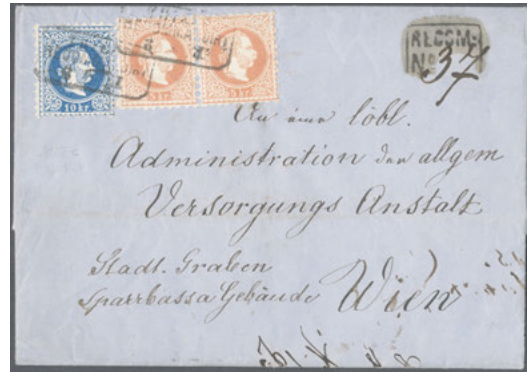 10 kr
5 kr
5 kr
RECOM:
No 37
An eine löbl.
Administration der allgem
Versorgungs Anstalt
Stadt. Graben
Sparkassa Gebäude Wien